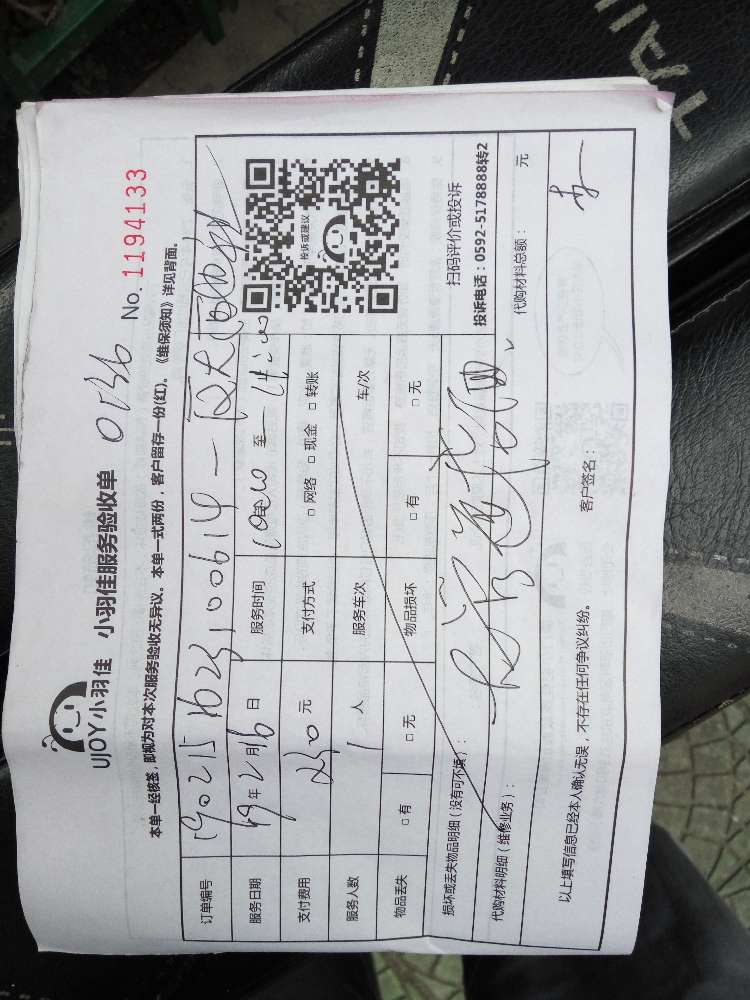 UJOY小羽佳 小羽佳服务验收单 No. 1194133
本单一经核签，即视为对本次服务验收无异议。本单一式两份，客户留存一份(红)。《维保须知》详见背面。
订单编号
服务日期 19年2月16日 服务时间 至
支付费用 元 支付方式 □ 网络 □ 现金 □ 转账
服务人数 1 人 服务车次 车/次
物品丢失 □ 有 □ 无 物品损坏 □ 有 □ 无
投诉或建议
扫码评价或投诉
投诉电话：0592-5178888转2
损坏或丢失物品明细（没有可不填）：
代购材料明细（维修业务）： 代购材料总额： 元
以上填写信息已经本人确认无误，不存在任何争议纠纷。 客户签名：